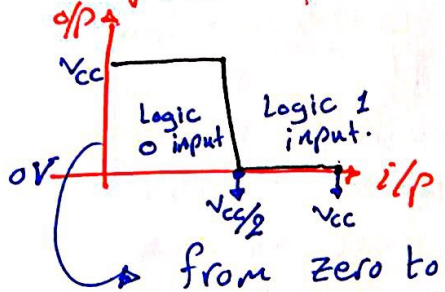 o/p
Vcc
Logic
0 input
Logic 1
input.
0V
i/p
Vcc/2
Vcc
from zero to